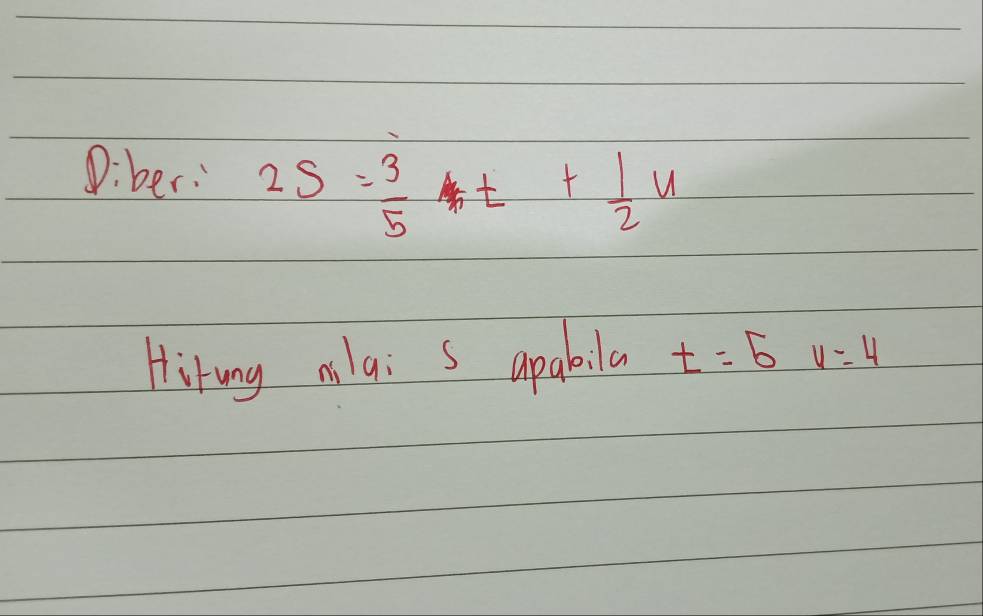 Diberi 2S = 3/5 t + 1/2 u
Hitung nilai s apabila t = 5 u = 4